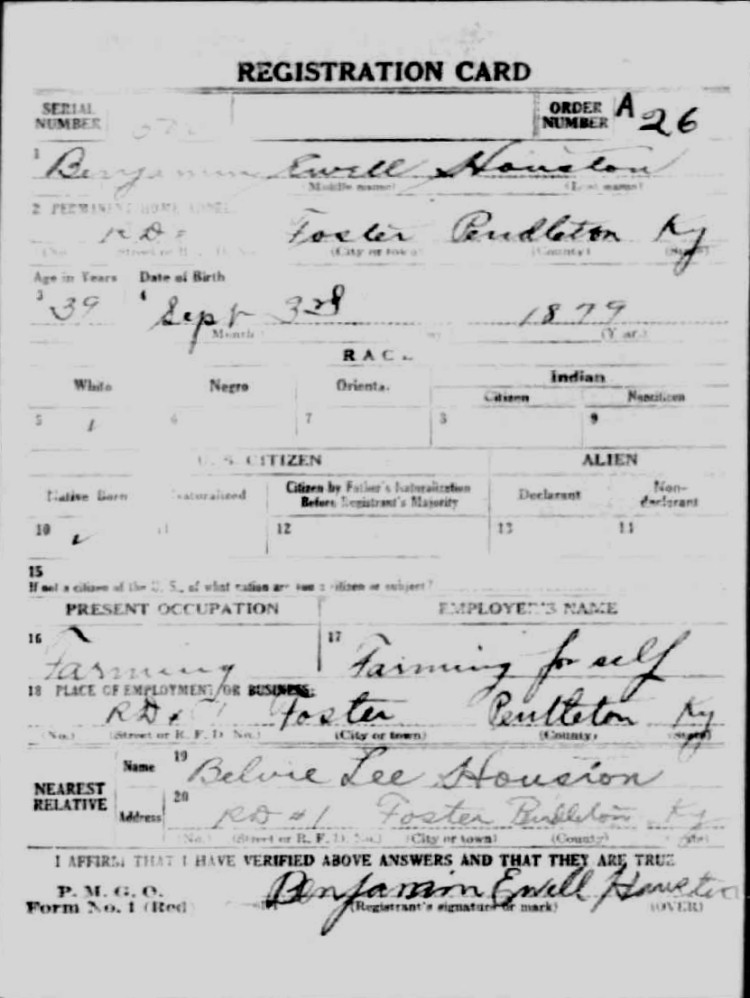 REGISTRATION CARD
SERIAL NUMBER ORDER NUMBER A 26
1 Benjamin Ewell Houston
(Middle name) (Last name)
2 PERMANENT HOME
RD Foster Pendleton Ky
(No.) (City or town) (County) (State)
Age in Years Date of Birth
3 39 4 Sept 3rd 1879
Month (Year)
RACE
White Negro Oriental Indian
Citizen Noncitizen
5 6 7 8 9
U. S. CITIZEN ALIEN
Native Born Naturalized Citizen by Father's Naturalization Before Registrant's Majority Declarant Non-declarant
10 11 12 13 14
15
If not a citizen of the U. S., of what nation are you a citizen or subject?
PRESENT OCCUPATION EMPLOYER'S NAME
16 Farming 17 Farming for self
18 PLACE OF EMPLOYMENT OR BUSINESS:
RD #1 Foster Pendleton Ky
(No.) (Street or R. F. D. No.) (City or town) (County) (State)
NEAREST RELATIVE Name 19 Belvie Lee Houston
Address 20 RD #1 Foster Pendleton Ky
(No.) (Street or R. F. D. No.) (City or town) (County) (State)
I AFFIRM THAT I HAVE VERIFIED ABOVE ANSWERS AND THAT THEY ARE TRUE
P. M. G. O.
Form No. 1 (Red) Benjamin Ewell Houston
(Registrant's signature or mark) (OVER)